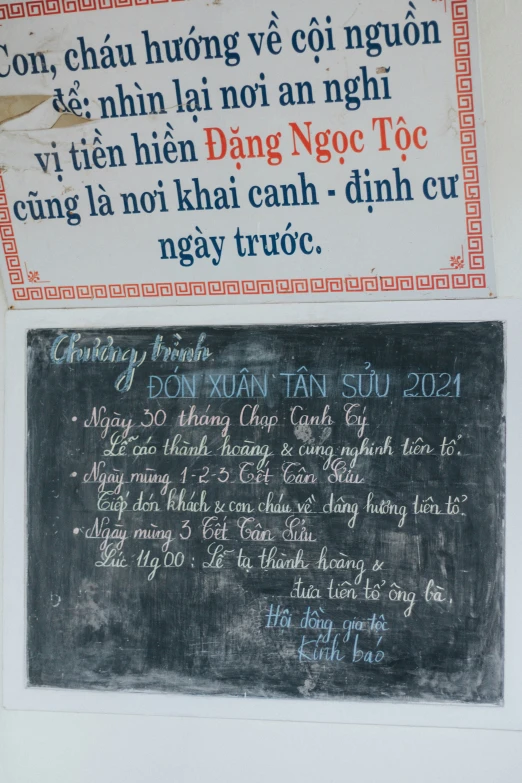 Con, cháu hướng về cội nguồn
để: nhìn lại nơi an nghĩ
vị tiền hiền Đặng Ngọc Tộc
cũng là nơi khai canh - định cư
ngày trước.
Chương trình
ĐÓN XUÂN TÂN SỬU 2021
• Ngày 30 tháng Chạp Canh Tý
Lễ cáo thành hoàng & cung nghinh tiên tổ.
• Ngày mùng 1-2-3 Tết Tân Sửu
Tiếp đón khách & con cháu về dâng hương tiên tổ.
• Ngày mùng 3 Tết Tân Sửu
Lúc 11g00: Lễ tạ thành hoàng &
đưa tiên tổ ông bà.
Hội đồng gia tộc
Kính báo